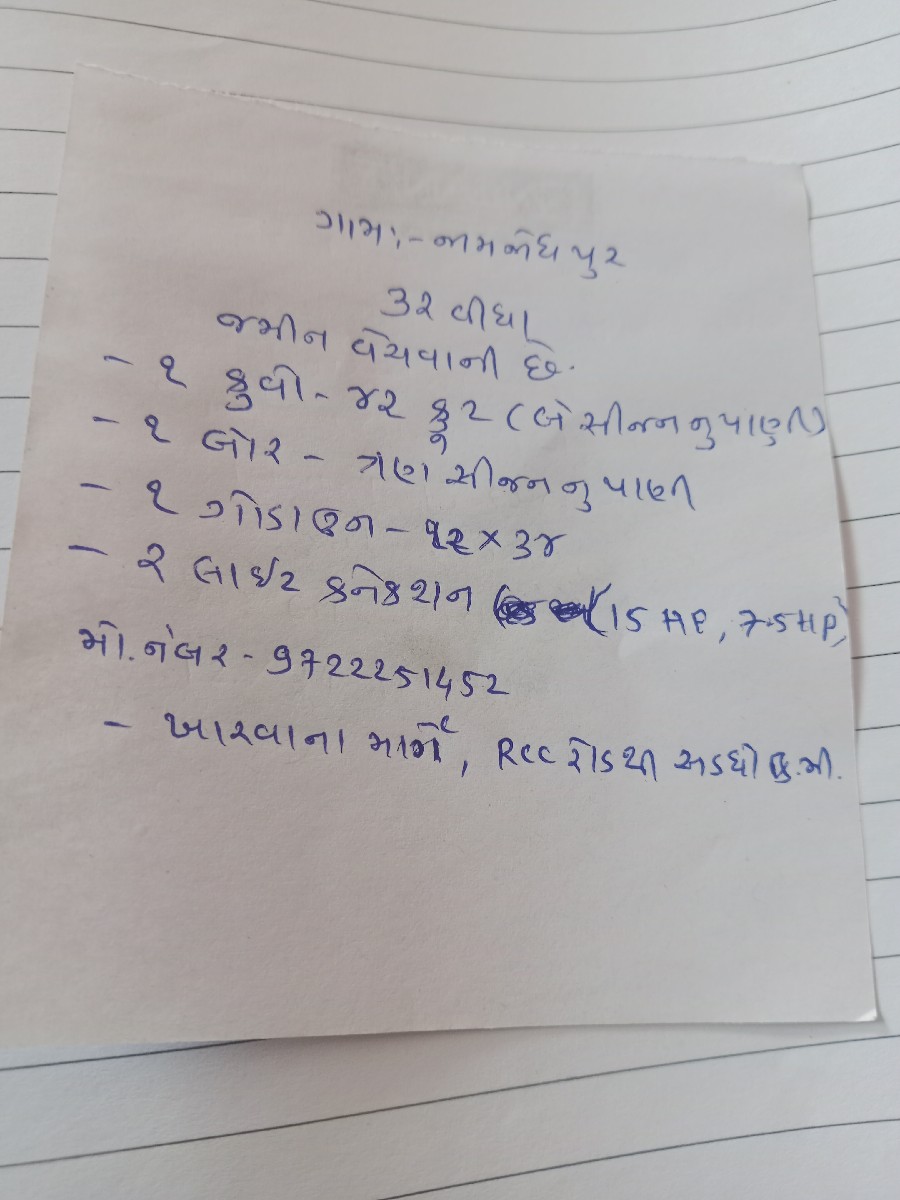 ગામ:- જામજોધપુર
૩૨ વીઘા
જમીન વેચવાની છે.
- ૧ કુવો - ૪૨ ફુટ (બે સીજન નુ પાણી)
- ૧ બોર - ત્રણ સીજન નુ પાણી
- ૧ ગોડાઉન - ૧૨ × ૩૪
- ૨ લાઈટ કનેકશન (15 HP, 7.5 HP)
મો. નંબર - 9722251452
- ખારવાના માર્ગે, RCC રોડથી અડધો કિ.મી.